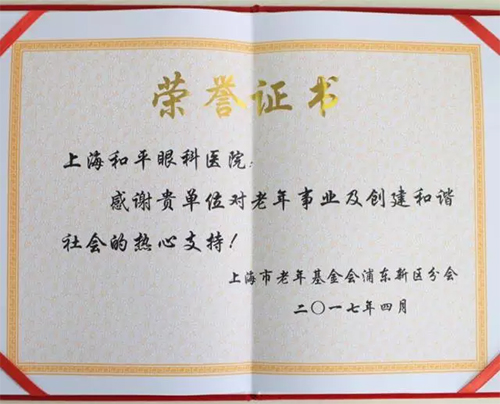 荣誉证书
上海和平眼科医院：
感谢贵单位对老年事业及创建和谐
社会的热心支持！
上海市老年基金会浦东新区分会
二〇一七年四月